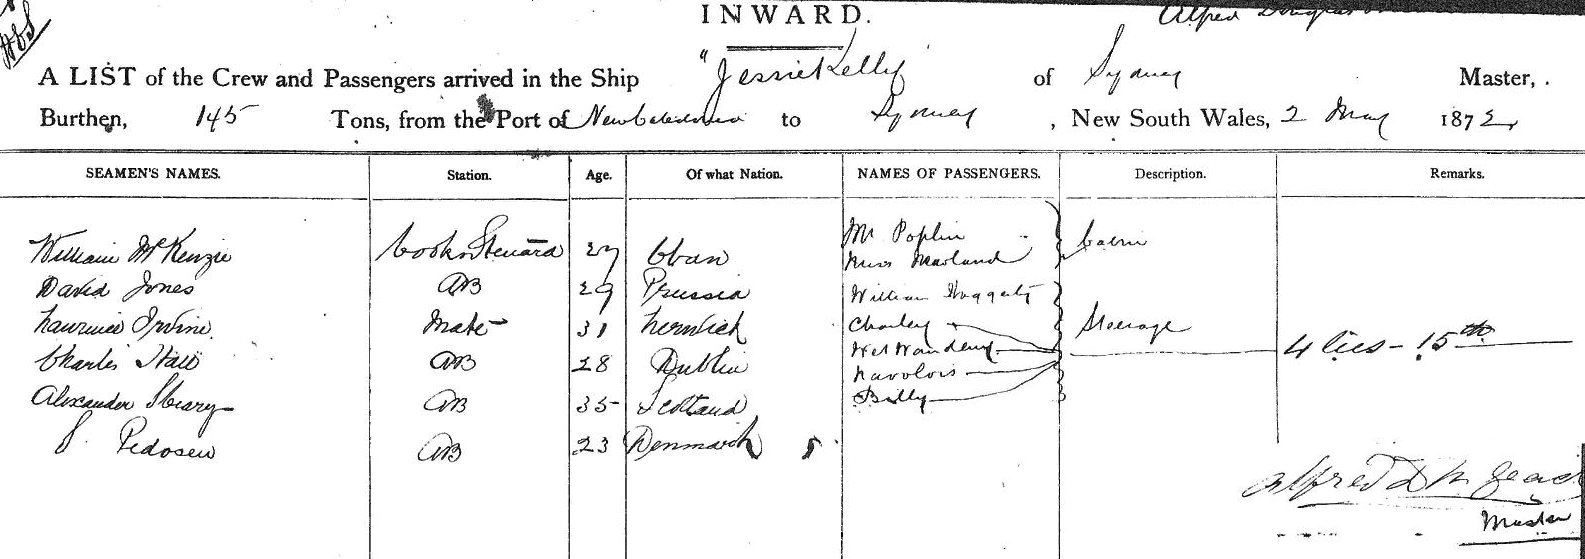 INWARD.
Alfred Douglas
A LIST of the Crew and Passengers arrived in the Ship "Jessie Kelly of Sydney Master,
Burthen, 145 Tons, from the Port of New Caledonia to Sydney, New South Wales, 2 May 1872,
SEAMEN'S NAMES. Station. Age. Of what Nation. NAMES OF PASSENGERS. Description. Remarks.
Mr Poplin Cabin
William McKenzie Cook & Steward 27 Oban Miss Marland
David Jones AB 29 Prussia William Haggerty
Laurence Irvine Mate 31 Lerwick Charley Steerage
Wet Wandeny 4 Cees - 15th
Charles Hall AB 28 Dublin Navolois
Alexander AB 35 Scotland Billy
S. Pedosen AB 23 Denmark
Alfred D M
Master